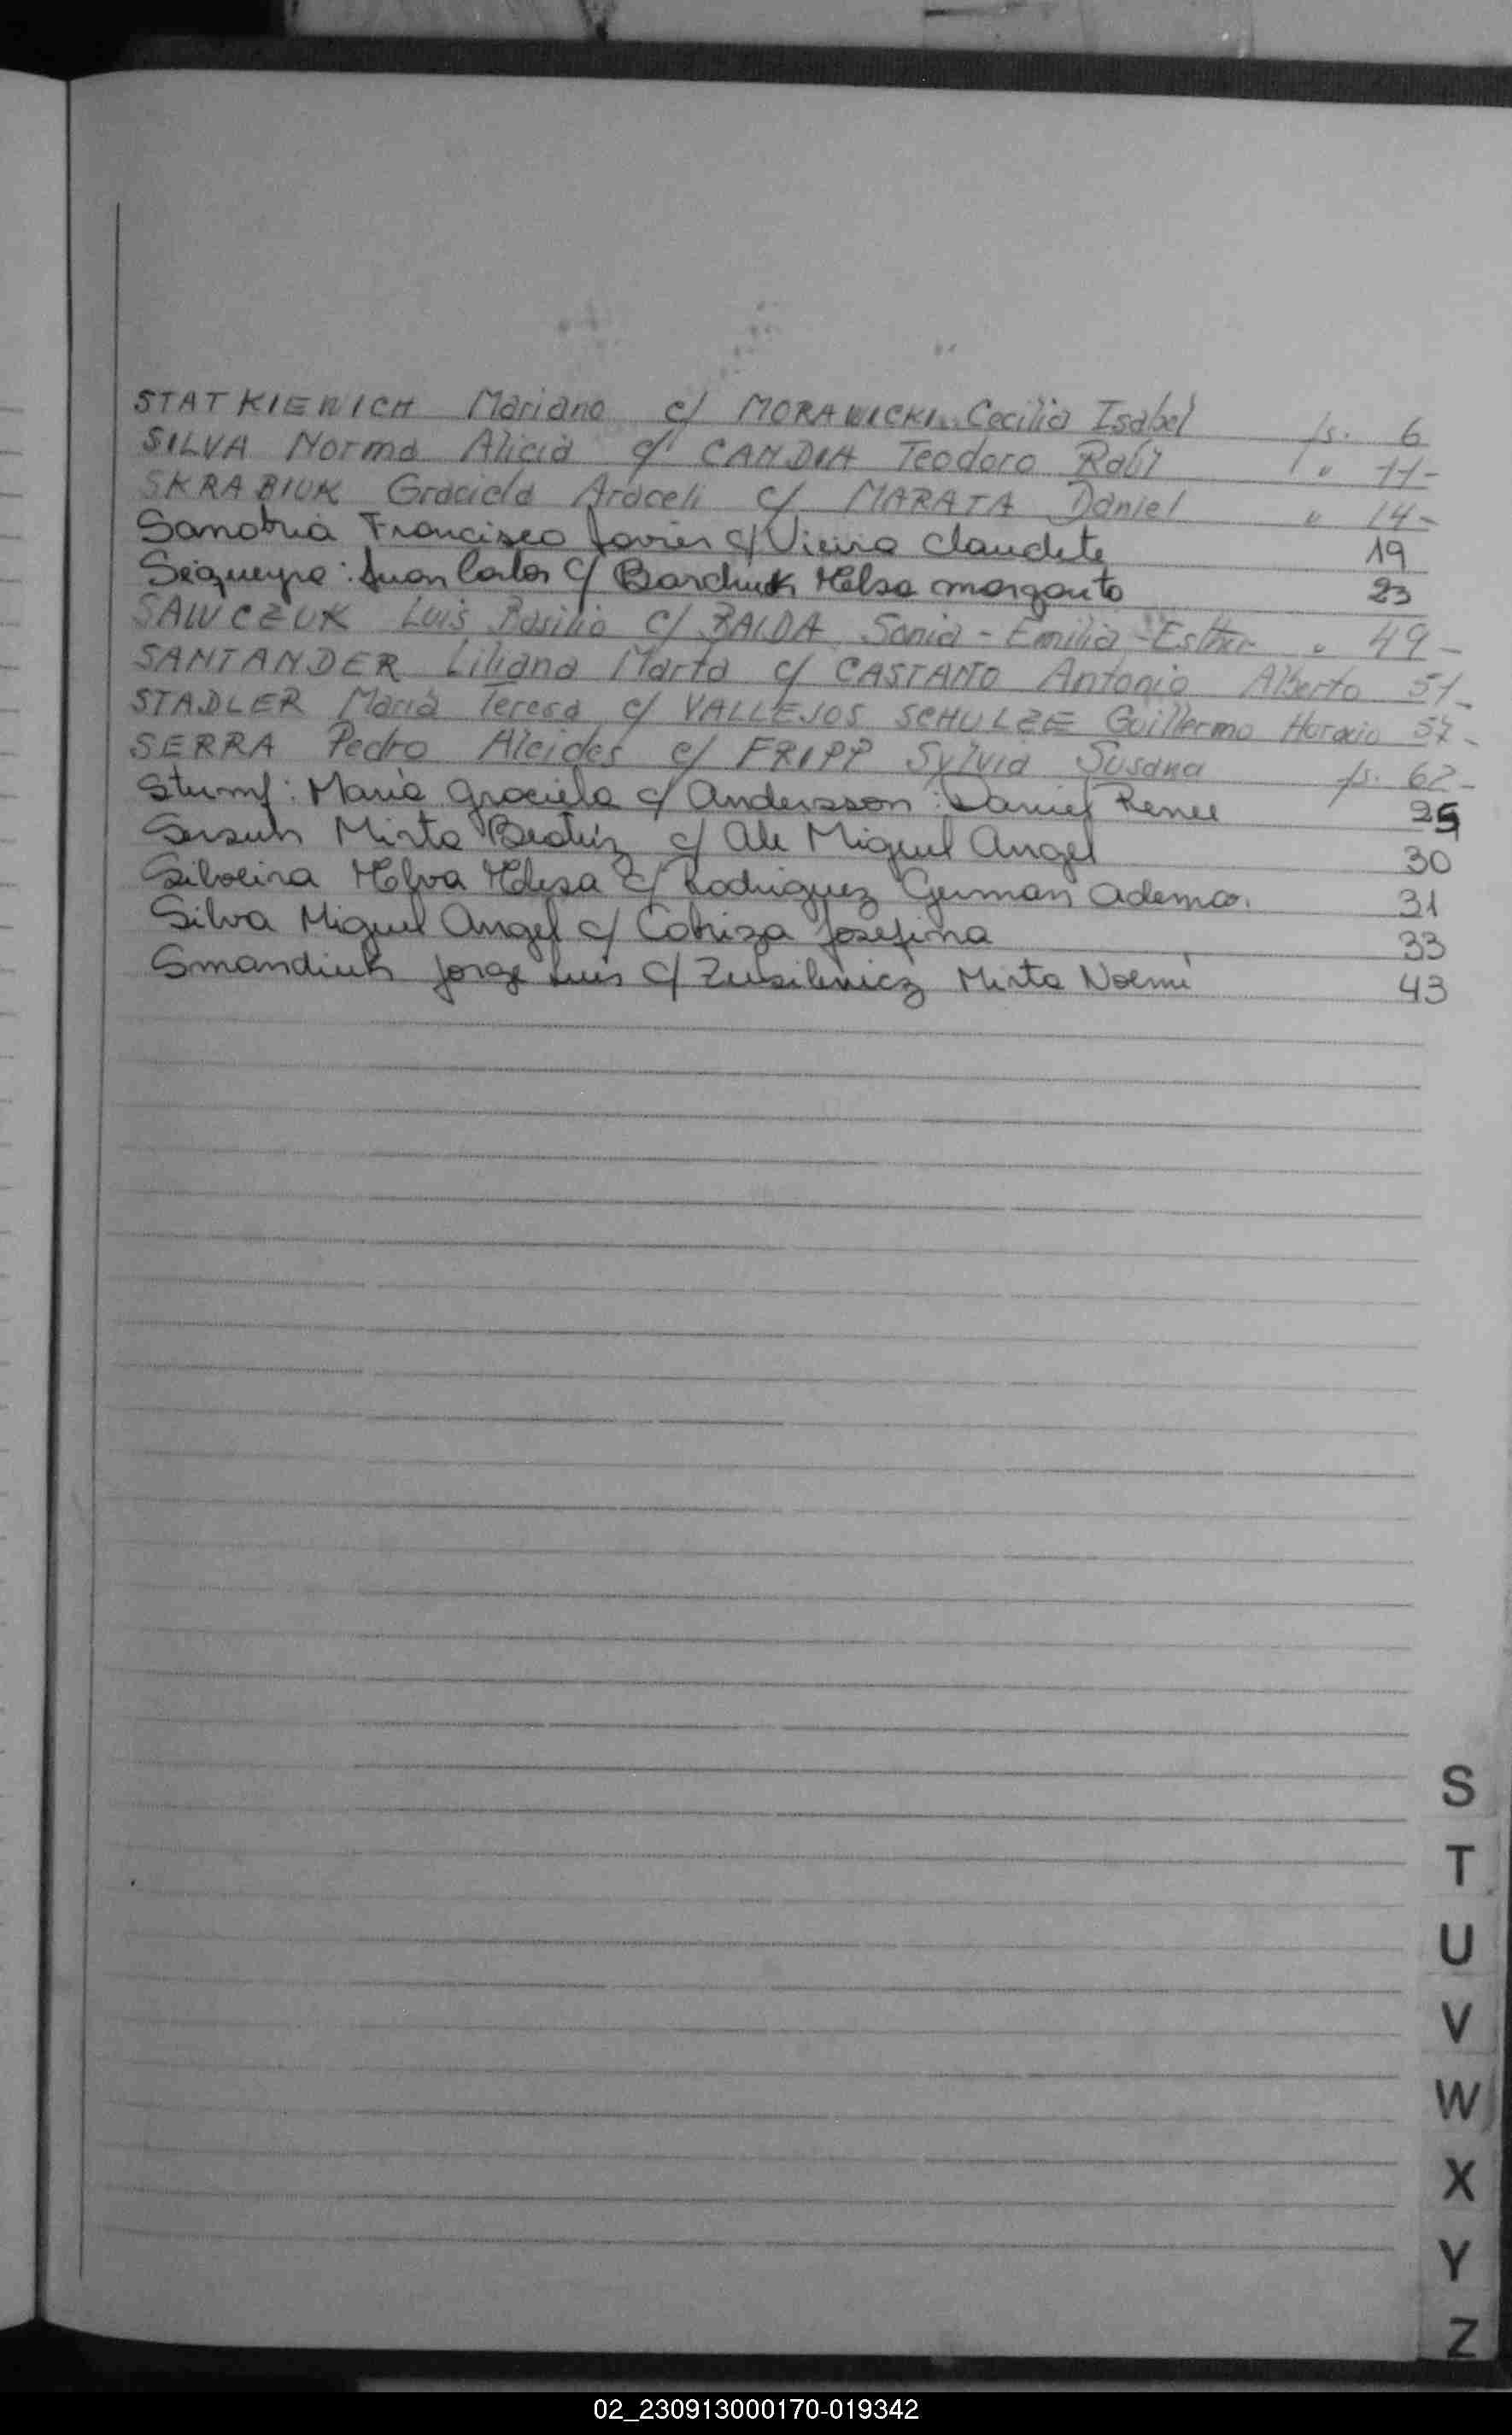 STATKIEWICH Mariano c/ MORAWICKI Cecilia Isabel fs. 6
SILVA Norma Alicia c/ CANDIA Teodoro Raúl " 11-
SKRABIUK Graciela Araceli c/ MARATA Daniel " 14-
Sanabria Francisco Javier c/ Vieira Claudete 19
Sequeyra: Juan Carlos c/ Barchuk Helsa Margarita 23
SAWCZUK Luis Basilio c/ BALDA Sonia-Emilia-Esther " 49-
SANTANDER Liliana Marta c/ CASTAÑO Antonio Alberto 51-
STADLER María Teresa c/ VALLEJOS SCHULZE Guillermo Horacio 57-
SERRA Pedro Alcides c/ FRIPP Sylvia Susana fs. 62-
Stumf: María Graciela c/ Andersson: Daniel Renee 25
Mirta Beatriz c/ Ale Miguel Angel 30
Silveira Melva c/ Rodriguez German Ademar. 31
Silva Miguel Angel c/ Cabriza Josefina 33
Smandiuk Jorge Luis c/ Mirta Noemí 43
S
T
U
V
W
X
Y
Z
02_230913000170-019342